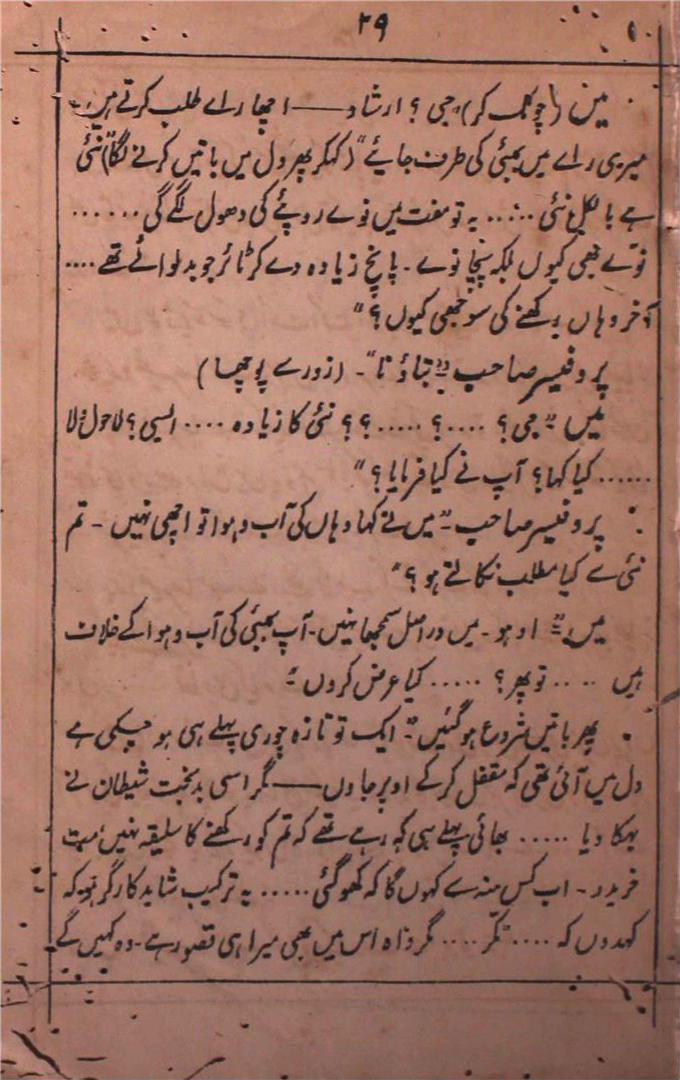 ۲۹
میں (چونک کر) "جی؟ ارشاد —— اچھا رائے طلب کرتے ہیں۔
میری رائے میں بمبئی کی طرف جائیے" (کہکر پھر دل میں باتیں کرنے لگا) "نئی
ہے بالکل نئی ..... یہ تو مفت میں نوے روپئے کی دھول لگے گی ......
نوّے بھی کیوں بلکہ پنچانوے ۔ پانچ زیادہ دے کر ٹائر جو بدلوائے تھے ....
آخر وہاں رکھنے کی سوجھی کیوں؟"
پروفیسر صاحب "بتاؤ نا"۔ (زور سے پوچھا)
میں "جی؟ ....؟ .....؟؟ نئی کا زیادہ .... ایسی؟ لاحول ولا
...... کیا کہا؟ آپ نے کیا فرمایا؟"
پروفیسر صاحب "میں نے کہا وہاں کی آب و ہوا تو اچھی نہیں ۔ تم
نئی سے کیا مطلب نکالتے ہو؟"
میں "اوہو ۔ میں دراصل سمجھا نہیں ۔ آپ بمبئی کی آب و ہوا کے خلاف
ہیں ..... تو پھر؟ ..... کیا عرض کروں"
پھر باتیں شروع ہو گئیں "ایک تو تازہ چوری پہلے ہی ہو چکی ہے
دل میں آئی تھی کہ مقفل کر کے اوپر جاؤں —— مگر اسی بدبخت شیطان نے
بہکا دیا ..... بھائی پہلے ہی کہہ رہے تھے کہ تم کو رکھنے کا سلیقہ نہیں، مت
خریدو ۔ اب کس منہ سے کہوں گا کہ کھو گئی ..... یہ ترکیب شاید کارگر ہو کہ
کہدوں کہ .... "ٹکر .... مگر واہ اس میں بھی میرا ہی قصور ہے ۔ وہ کہیں گے